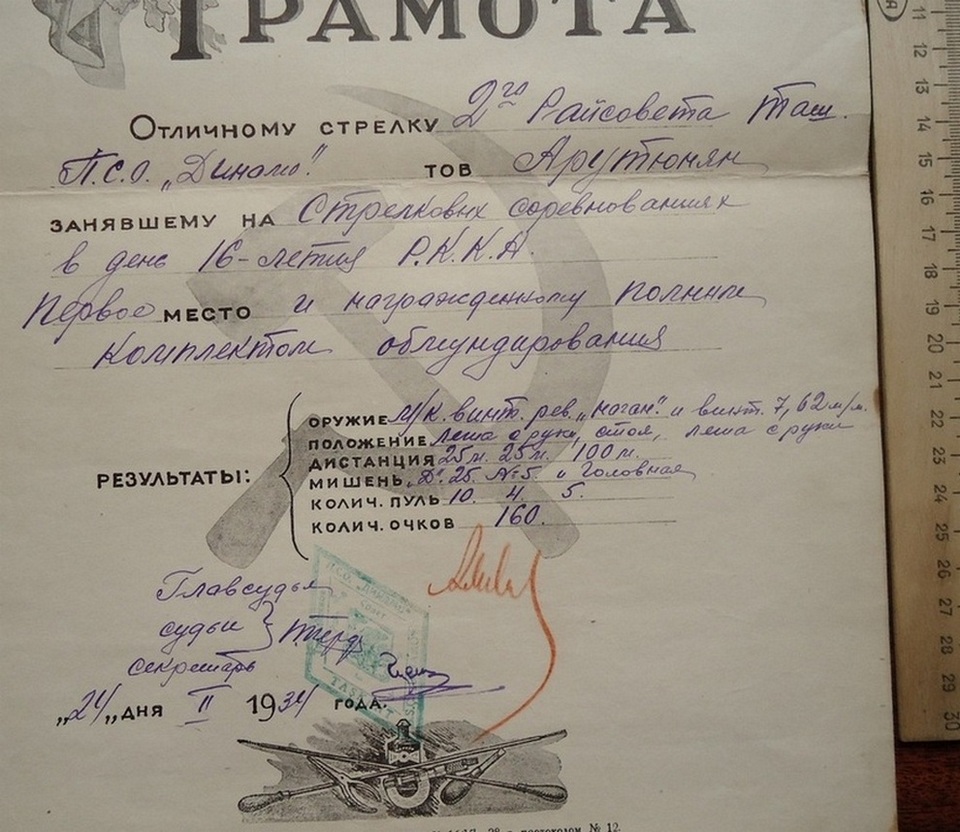 ГРАМОТА
ОТЛИЧНОМУ СТРЕЛКУ 2го Райсовета Таш.
П.С.О. „Динамо". ТОВ Арутюнян
ЗАНЯВШЕМУ НА Стрелковых соревнованиях
в день 16-летия Р.К.К.А.
Первое МЕСТО и награжденному полным
комплектом обмундирования
РЕЗУЛЬТАТЫ:
ОРУЖИЕ М/к. винт. рев. „наган". и винт. 7,62 м/м.
ПОЛОЖЕНИЕ лежа с руки, стоя, лежа с руки
ДИСТАНЦИЯ 25 м. 25 м. 100 м.
МИШЕНЬ „Д". 25. №5. и Головная
КОЛИЧ. ПУЛЬ 10. 4. 5.
КОЛИЧ. ОЧКОВ 160.
Главсудья
судьи
секретарь
П.С.О. „ДИНАМО"
TAŞKENT
„24„ ДНЯ II 1934 ГОДА.
протоколом № 12.
11
12
13
14
15
16
17
18
19
20
21
22
23
24
25
26
27
28
29
30